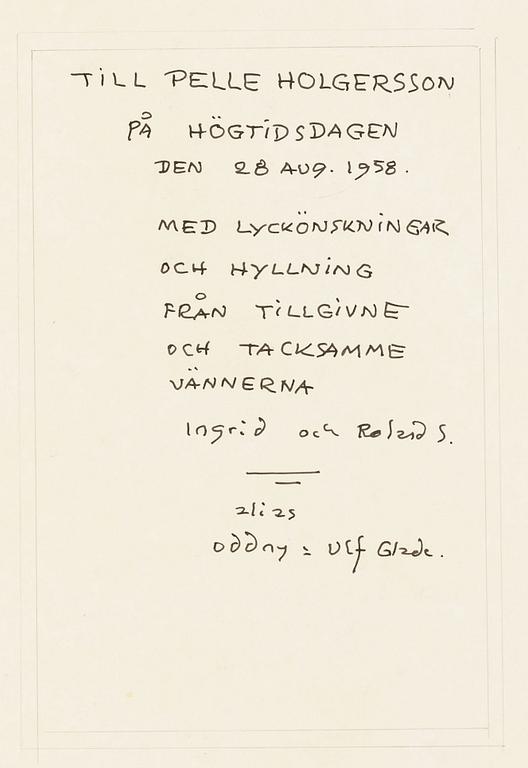 TILL PELLE HOLGERSSON
PÅ HÖGTIDSDAGEN
DEN 28 AUG. 1958.
MED LYCKÖNSKNINGAR
OCH HYLLNING
FRÅN TILLGIVNE
OCH TACKSAMME
VÄNNERNA
Ingrid och Roland S.
alias
Oddny : Ulf Glade.